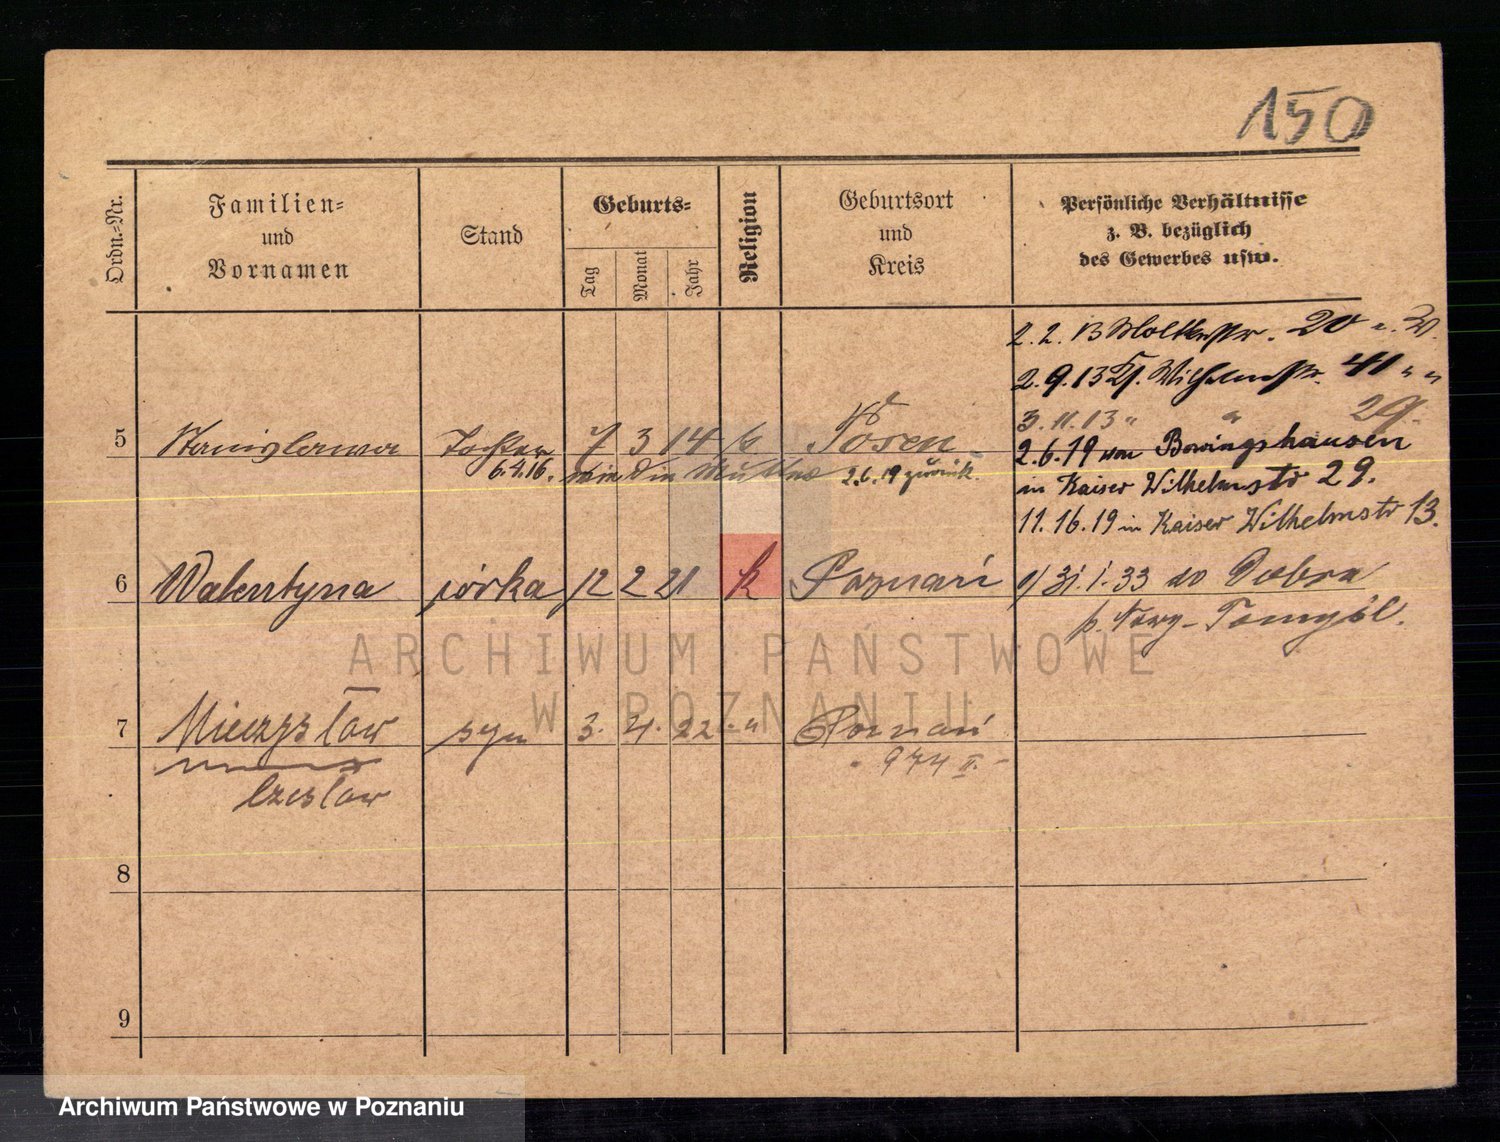 150
Ordn.-Nr.
Familien-
und
Vornamen
Stand
Geburts-
Tag
Monat
Jahr
Religion
Geburtsort
und
Kreis
Persönliche Verhältnisse
z. B. bezüglich
des Gewerbes usw.
2. 2. 13 Moltkestr. 20
2. 9. 13 Wilhelmstr. 41 " "
3. 11. 13 " " 29.
5 Stanislawa Tochter 7 3 14 k Posen
2.6.19 von Bovingshausen
6.4.16. Mutter 2.6.19 zurück.
in Kaiser Wilhelmstr 29.
11. 16. 19 in Kaiser Wilhelmstr 13.
6 Walentyna córka 12 2 21 k Poznań 31. 1. 33 do Dobra
p. Nowy-Tomyśl.
7 Mieczysław syn 3. 4. 22. " Poznań
974 II.
Czesław
8
9
ARCHIWUM PAŃSTWOWE
W POZNANIU
Archiwum Państwowe w Poznaniu